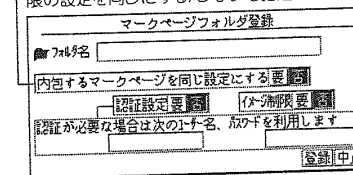 限の設定を同じにする
マークページフォルダ登録
フォルダ名
内包するマークページを同じ設定にする 要 否
認証設定 要 否 イメージ制限 要 否
認証が必要な場合は次のユーザー名、パスワードを利用します
登録 中